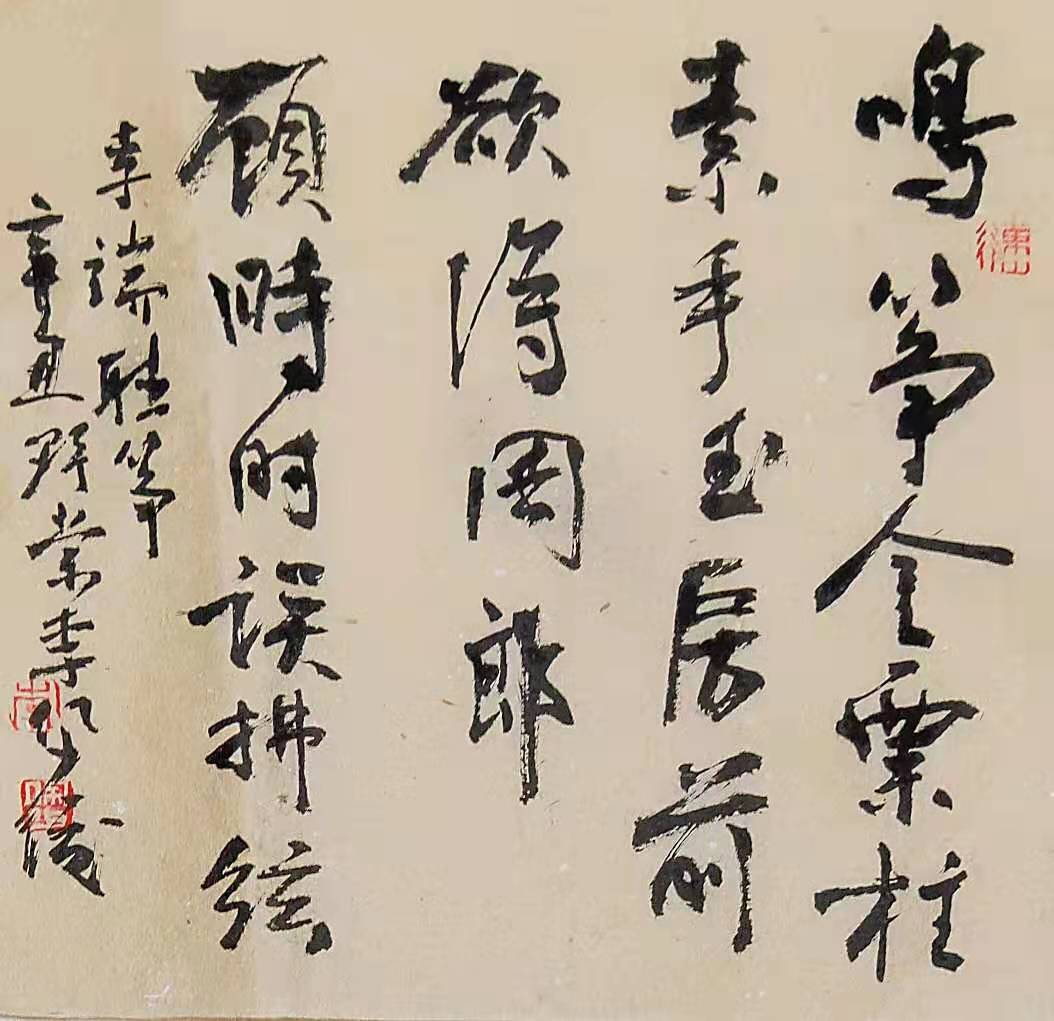 鳴筝金粟柱
素手玉房前
欲得周郎
顧時時誤拂絃
李端聽筝
辛丑